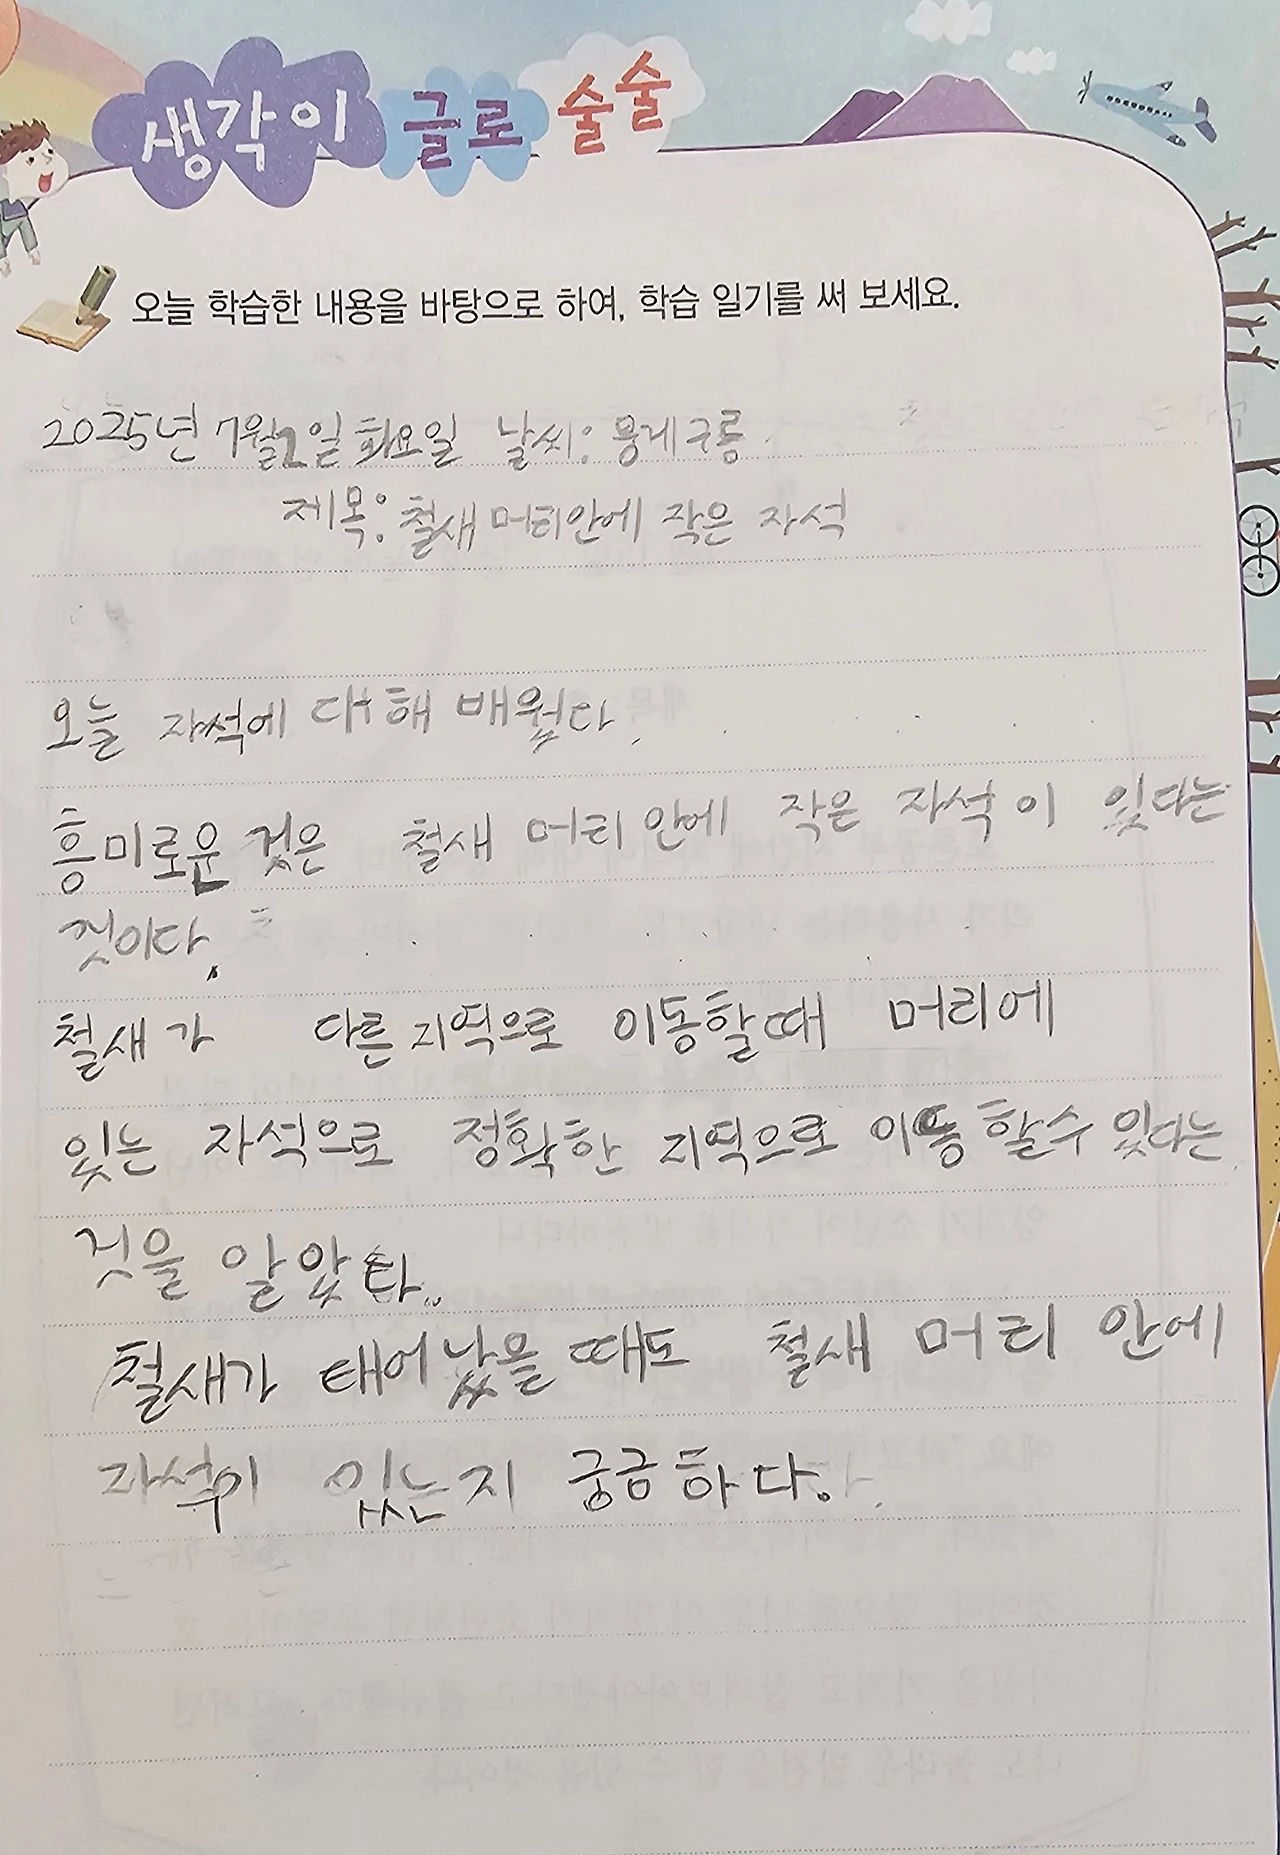 생각이 글로 술술
오늘 학습한 내용을 바탕으로 하여, 학습 일기를 써 보세요.
2025년 7월 일 화요일 날씨: 뭉게구름
제목: 철새 머리안에 작은 자석
오늘 자석에 대해 배웠다.
흥미로운 것은 철새 머리 안에 작은 자석이 있다는
것이다.
철새가 다른 지역으로 이동할때 머리에
있는 자석으로 정확한 지역으로 이동 할수 있다는
것을 알았다.
철새가 태어났을 때도 철새 머리 안에
자석이 있는지 궁금하다.